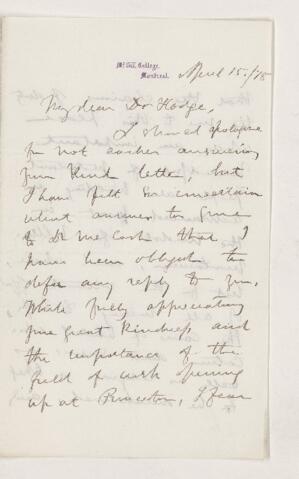 McGill College,
Montreal.
April 15/78
My dear Dr Hodge,
I should apologise
for not sooner answering
your kind letter, but
I have felt so uncertain
what answer to give
to Dr McCosh that I
have been obliged to
defer any reply to you.
While fully appreciating
your great kindness and
the importance of the
field of work opening
up at Princeton, I fear